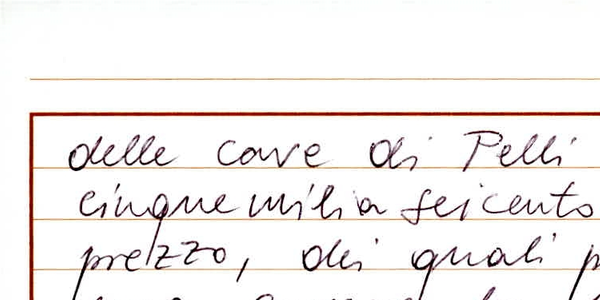 delle cave di Pelli
cinquemilia seicento
prezzo, dei quali